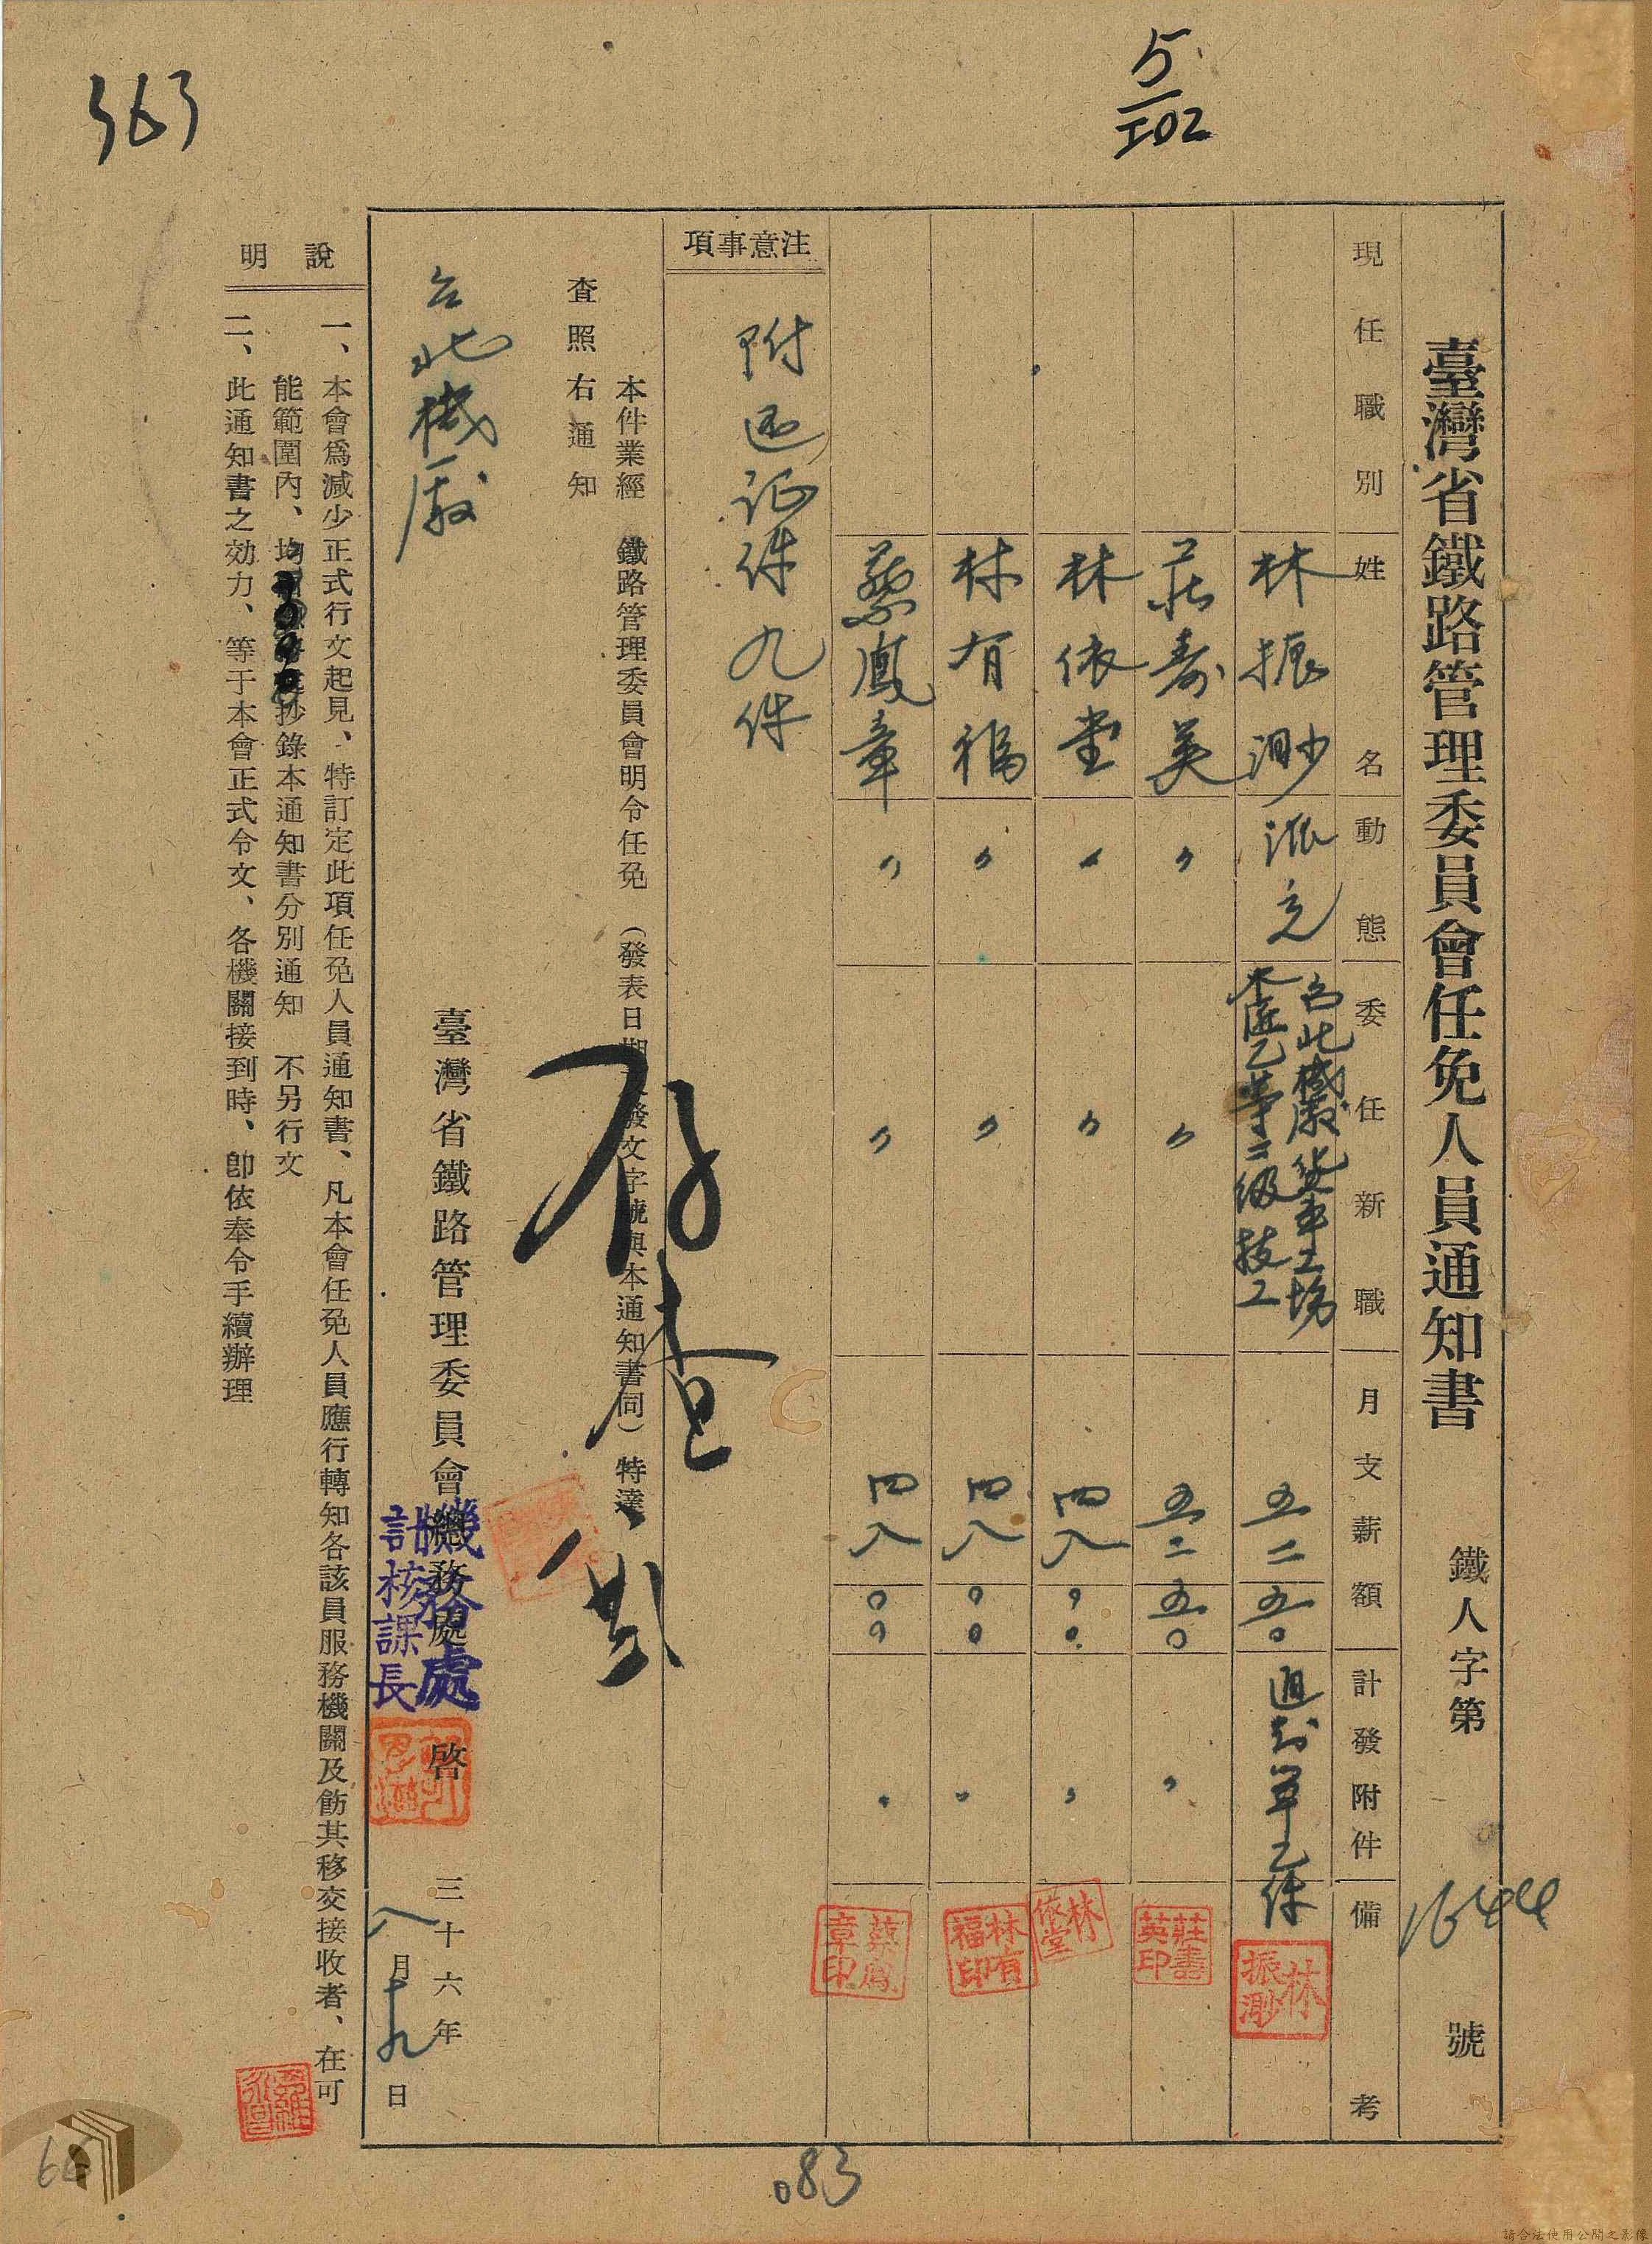 363
5
102
臺灣省鐵路管理委員會任免人員通知書 鐵人字第 1644 號
現任職別 姓名 動態 委任新職 月支薪額 計發附件 備考
林振渺 派充 台北機廠貨車工場
木匠乙等二級技工 五二 五〇 通知單乙件
林振渺
莊壽英 〃 〃 五二 五〇 〃
莊壽英印
林依堂 〃 〃 四八 〇〇 〃
林依堂
林有福 〃 〃 四八 〇〇 〃
林有福印
蔡鳳章 〃 〃 四八 〇〇 〃
蔡鳳章印
注意事項
附還証件九件
本件業經 鐵路管理委員會明令任免 (發表日期發文字號與本通知書同) 特達
查照右通知
存查
台北機廠
臺灣省鐵路管理委員會總務處 啓
機務處
計核課長
三十六年
八月十九日
說明
一、本會爲減少正式行文起見、特訂定此項任免人員通知書、凡本會任免人員應行轉知各該員服務機關及飭其移交接收者、在可
能範圍內、均抄錄本通知書分別通知 不另行文
二、此通知書之効力、等于本會正式令文、各機關接到時、卽依奉令手續辦理
083
66
請合法使用公開之影像